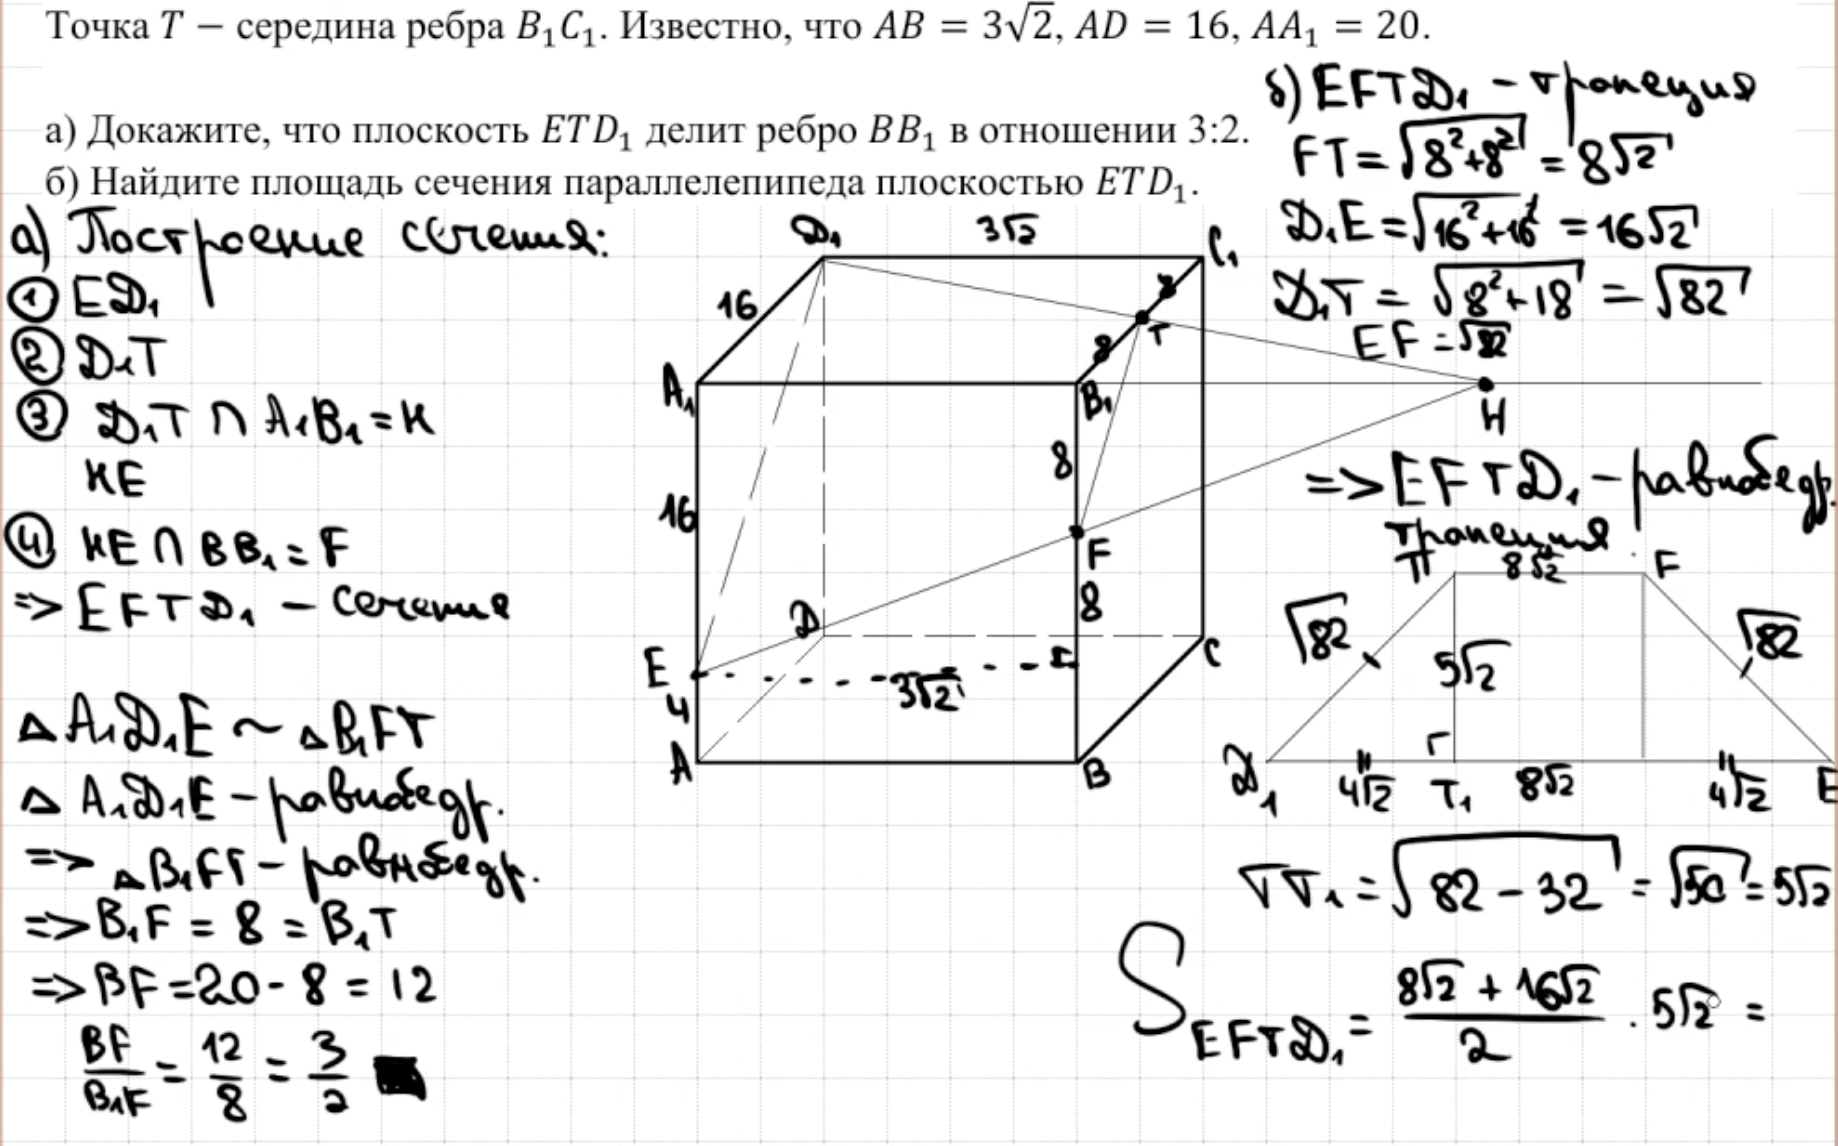 Точка T – середина ребра B₁C₁. Известно, что AB = 3√2, AD = 16, AA₁ = 20.
а) Докажите, что плоскость ETD₁ делит ребро BB₁ в отношении 3:2.
б) Найдите площадь сечения параллелепипеда плоскостью ETD₁.
а) Построение сечения:
① ED₁
② D₁T
③ D₁T ∩ A₁B₁ = H
HE
④ HE ∩ BB₁ = F
=> EFTD₁ – сечение
△A₁D₁E ~ △B₁FT
△A₁D₁E – равнобедр.
=> △B₁FT – равнобедр.
=> B₁F = 8 = B₁T
=> BF = 20 - 8 = 12
BF/B₁F = 12/8 = 3/2
D₁
3√2
C₁
16
8
T
8
A₁
B₁
H
8
16
F
D
8
E
3√2
C
4
A
B
б) EFTD₁ – трапеция
FT = √8²+8² = 8√2
D₁E = √16²+16² = 16√2
D₁T = √8²+18 = √82
EF = √82
=> EFTD₁ – равнобедр.
трапеция
T
8√2
F
√82
5√2
√82
D₁
4√2
T₁
8√2
4√2
E
TT₁ = √82 – 32 = √50 = 5√2
S EFTD₁ = (8√2 + 16√2)/2 · 5√2 =